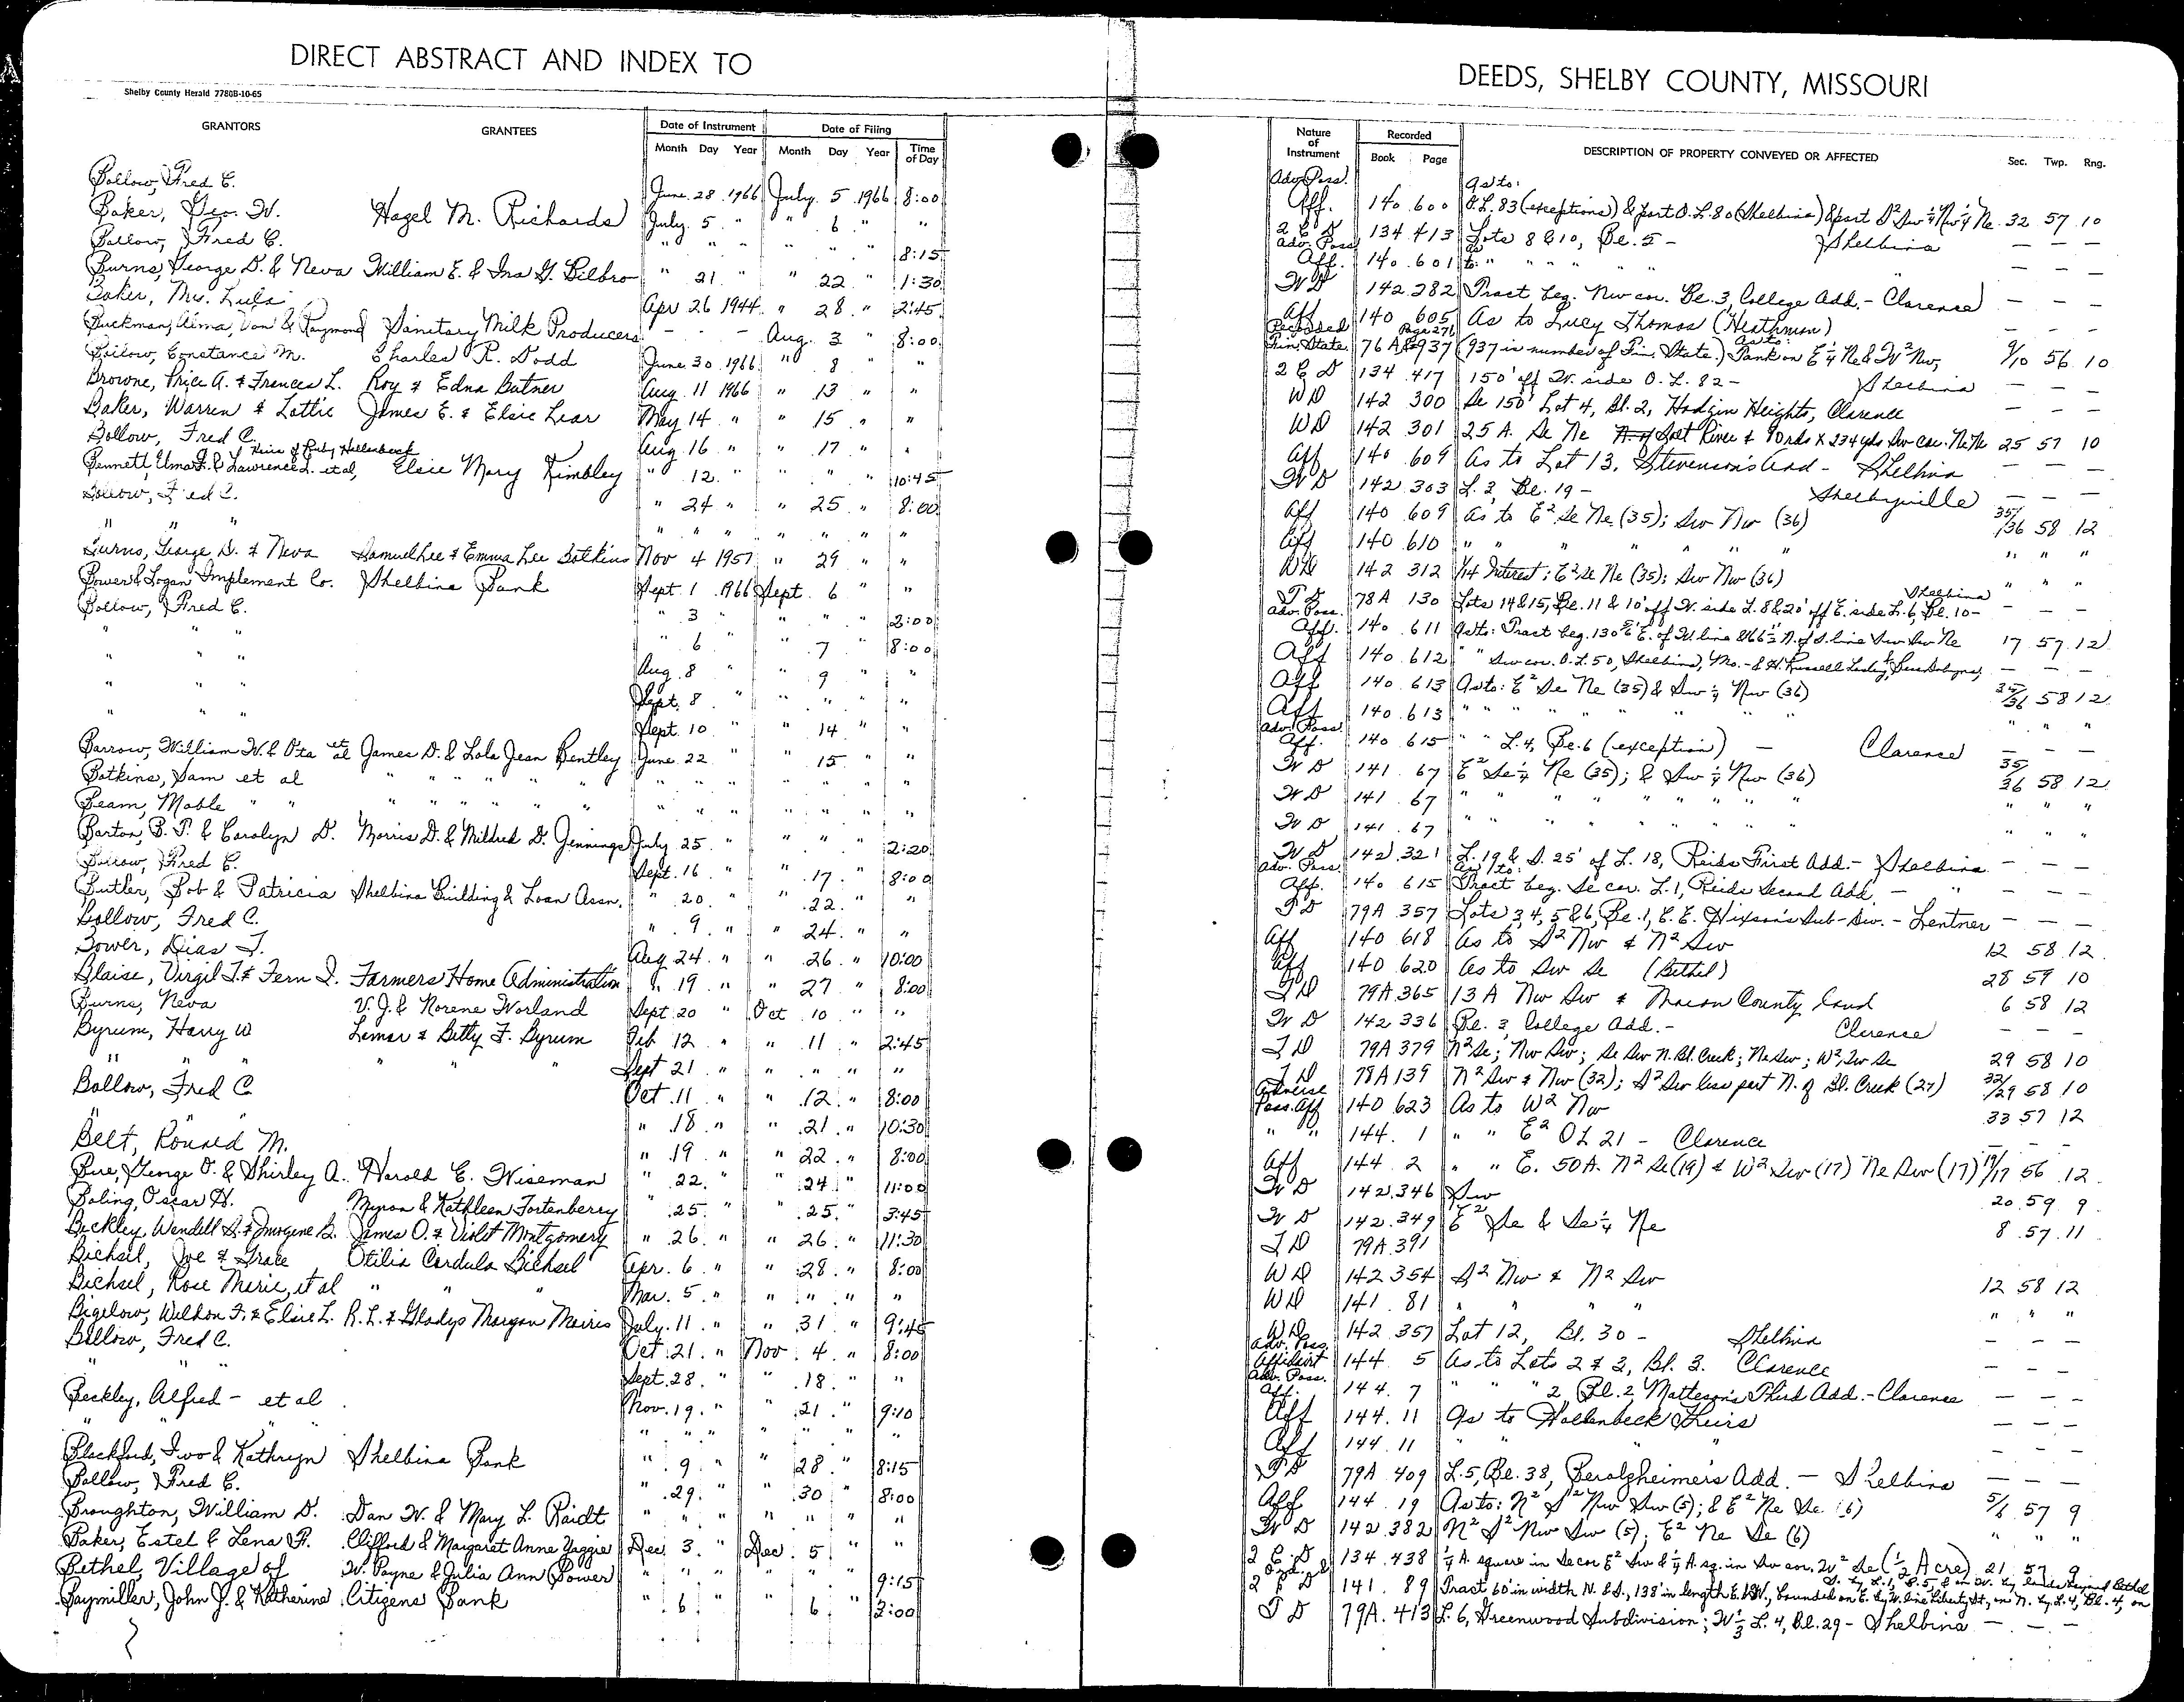 DIRECT ABSTRACT AND INDEX TO
DEEDS, SHELBY COUNTY, MISSOURI
Shelby County Herald 7780B-10-65
GRANTORS GRANTEES Date of Instrument Date of Filing Nature of Instrument Recorded DESCRIPTION OF PROPERTY CONVEYED OR AFFECTED Sec. Twp. Rng.
Month Day Year Month Day Year Time of Day Book Page
Bollow, Fred C. June 28 1966 July 5 1966 8:00 Adv. Poss. Aff. 140 600 As to: O.L. 83 (exceptions) & part O.L. 80 (Shelbina) & part S² Sw ¼ Nw ¼ Ne 32 57 10
Baker, Geo. W. Hazel M. Richards July 5 " " 6 " " 2 C D 134 413 Lots 8 & 10, Bl. 5 - Shelbina — — —
Bollow, Fred C. " " " " " " 8:15 Adv. Poss. Aff. 140 601 As to: " " " " " — — —
Burns, George D. & Neva William E. & Ina G. Bilbro " 21 " " 22 " 1:30 W D 142 282 Tract beg. Nw cor. Bl. 3, College Add. - Clarence — — —
Baker, Mrs. Lula Apr 26 1944 " 28 " 2:45 Aff 140 605 As to Lucy Thomas (Heathman) — — —
Buckman, Alma, Von & Raymond Sanitary Milk Producers - - - Aug. 3 " 8:00 Recorded Fin. State. 76 A Page 271 937 (937 is number of Fin. State.) As to: Tank on E ¼ Ne & W² Nw, 9/10 56 10
Bilow, Constance M. Charles R. Dodd June 30 1966 " 8 " " 2 C D 134 417 150' off W. side O.L. 82 - Shelbina — — —
Browne, Price A. & Frances L. Roy & Edna Butner Aug. 11 1966 " 13 " " WD 142 300 Se 150' Lot 4, Bl. 2, Hodgin Heights, Clarence — — —
Baker, Warren & Lottie James E. & Elsie Lear May 14 " " 15 " " WD 142 301 25 A. Se Ne N. of Salt River & 90 rds X 234 yds Sw cor. Ne Ne 25 57 10
Bollow, Fred C. Aug. 16 " " 17 " " Aff 140 609 As to Lot 13, Stevenson's Add - Shelbina — — —
Heirs of Ruby Hollenbeck
Bennett, Elma F. & Lawrence L. et al, Elsie Mary Kimbley " 12 " " " " 10:45 W D 142 303 L. 2, Bl. 19 - Shelbyville — — —
Bollow, Fred C. " 24 " " 25 " 8:00 Aff 140 609 As to E² Se Ne (35); Sw Nw (36) 35/36 58 12
" " " " " " " " " " Aff 140 610 " " " " " " " " "
Burns, George D. & Neva Samuel Lee & Emma Lee Botkins Nov 4 1957 " 29 " " WD 142 312 1/14 Interest; E² Se Ne (35); Sw Nw (36) " " "
Bower & Logan Implement Co. Shelbina Bank Sept. 1 1966 Sept. 6 " " T D 78A 130 Lots 14 & 15, Bl. 11 & 10' off W. side L. 8 & 20' off E. side L. 6, Bl. 10 - Shelbina — — —
Bollow, Fred C. " 3 " " " " 2:00 Adv. Poss. Aff. 140 611 As to: Tract beg. 130 E. of W. line & 66½ N. of S. line Sw Sw Ne 17 57 12
" " " " 6 " " 7 " 8:00 Aff 140 612 " " Sw cor. O.L. 50, Shelbina, Mo. — — —
" " " Aug. 8 " " 9 " " Aff 140 613 As to: E² Se Ne (35) & Sw ¼ Nw (36) 35/36 58 12
" " " Sept. 8 " " " " " Aff 140 613 " " " " " " " " "
" " " Sept. 10 " " 14 " " Adv. Poss. Aff. 140 615 " " L. 4, Bl. 6 (exception) — Clarence — — —
Barrow, William W. & Ota et al James D. & Lola Jean Bentley June 22 " " 15 " " W D 141 67 E² Se ¼ Ne (35); & Sw ¼ Nw (36) 35/36 58 12
Botkins, Sam et al " " " " " " " " " " " W D 141 67 " " " " " " " " "
Beam, Mable " " " " " " " " " " " " " W D 141 67 " " " " " " " " "
Barton, B. T. & Carolyn D. Morris D. & Mildred D. Jennings July 25 " " " " 2:20 W D 142 321 L. 19 & S. 25' of L. 18, Reids First Add. - Shelbina — — —
Bollow, Fred C. Sept. 16 " " 17 " 8:00 Adv. Poss. Aff. 140 615 As to: Tract beg. Se cor. L. 1, Reids Second Add. — " — — —
Butler, Bob & Patricia Shelbina Building & Loan Assn. " 20 " " 22 " " T D 79A 357 Lots 3, 4, 5 & 6, Bl. 1, E. E. Hixson's Sub-Div. - Lentner — — —
Bollow, Fred C. " 9 " " 24 " " Aff 140 618 As to S² Nw & N² Sw 12 58 12
Bower, Dias T. Aug 24 " " 26 " 10:00 Aff 140 620 As to Sw Se (Bethel) 28 59 10
Blaise, Virgil T. & Fern I. Farmers Home Administration " 19 " " 27 " 8:00 T D 79A 365 13 A Nw Sw & Macon County land 6 58 12
Burns, Neva V. J. & Norene Worland Sept. 20 " Oct 10 " " W D 142 336 Bl. 3, College Add. - Clarence — — —
Byrum, Harry W Lemar & Betty F. Byrum Feb 12 " " 11 " 2:45 T D 79A 379 N² Se; Nw Sw; Se Sw N. Bl. Creek; Ne Sw; W² Sw Se 29 58 10
" " " " " " Sept 21 " " " " " T D 78A 139 N² Sw & Nw (32); S² Sw less part N. of Bl. Creek (29) 32/29 58 10
Bollow, Fred C Oct. 11 " " 12 " 8:00 Adverse Poss. Aff 140 623 As to W² Nw 33 57 12
" " " 18 " " 21 " 10:30 " " 144 1 " " E² OL 21 - Clarence — — —
Belt, Ronald M. " 19 " " 22 " 8:00 Aff 144 2 " " E. 50 A. N² Se (19) & W² Sw (17) Ne Sw (17) 19/17 56 12
Bue, George O. & Shirley A. Harold E. Wiseman " 22 " " 24 " 11:00 W D 142 346 Sw 20 59 9
Boling, Oscar H. Myron & Kathleen Fortenberry " 25 " " 25 " 3:45 W D 142 349 E² Se & Se ¼ Ne 8 57 11
Beckley, Wendell S. & Imogene B. James O. & Violet Montgomery " 26 " " 26 " 11:30 T D 79A 391
Bichsel, Joe & Grace Otilia Cordula Bichsel Apr. 6 " " 28 " 8:00 WD 142 354 S² Nw & N² Sw 12 58 12
Bichsel, Rose Marie, et al " " " Mar. 5 " " " " " WD 141 81 " " " " " " "
Bigelow, Weldon F. & Elsie L. R. L. & Gladys Morgan Morris July 11 " " 31 " 9:45 WD 142 357 Lot 12, Bl. 30 - Shelbina — — —
Bollow, Fred C. Oct. 21 " Nov. 4 " 8:00 Adv. Poss. Affidavit 144 5 As to Lots 2 & 3, Bl. 3. Clarence — — —
" " " Sept. 28 " " 18 " " Adv. Poss. Aff. 144 7 " " " 2, Bl. 2 Matteson's Third Add. - Clarence — — —
Beckley, Alfred - et al Nov. 19 " " 21 " 9:10 Aff 144 11 As to Hollenbeck Heirs — — —
" " " " " " " " " Aff 144 11 " " " " — — —
Blackford, Ivo & Kathryn Shelbina Bank " 9 " " 28 " 8:15 T D 79A 409 L. 5, Bl. 38, Beralzheimer's Add. — Shelbina — — —
Bollow, Fred C. " 29 " " 30 " 8:00 Aff 144 19 As to: N² S² Nw Sw (5); & E² Ne Se (6) 5/6 57 9
Broughton, William D. Dan W. & Mary L. Raidt " " " " " " " W D 142 382 N² S² Nw Sw (5); E² Ne Se (6) " " "
Baker, Estel & Lena F. Clifford & Margaret Anne Yaggie Dec. 3 " Dec. 5 " " 2 C D 134 438 ¼ A. square in Se cor E² Sw & ¼ A. sq. in Sw cor. W² Se (½ Acre) 21 57 9
Bethel, Village of W. Payne & Julia Ann Bower " " " " " " 9:15 2 C D 141 89 Tract 60' in width N. & S., 138' in length E. & W., bounded on E. by W. line Liberty St., on N. by L. 4, Bl. 4, on S. by L. 1, B. 5, & on W. by lands beyond Bethel
Baymiller, John J. & Katherine Citizens Bank " 6 " " 6 " 2:00 T D 79A 413 L. 6, Greenwood Subdivision; W⅓ L. 4, Bl. 29 - Shelbina — — —